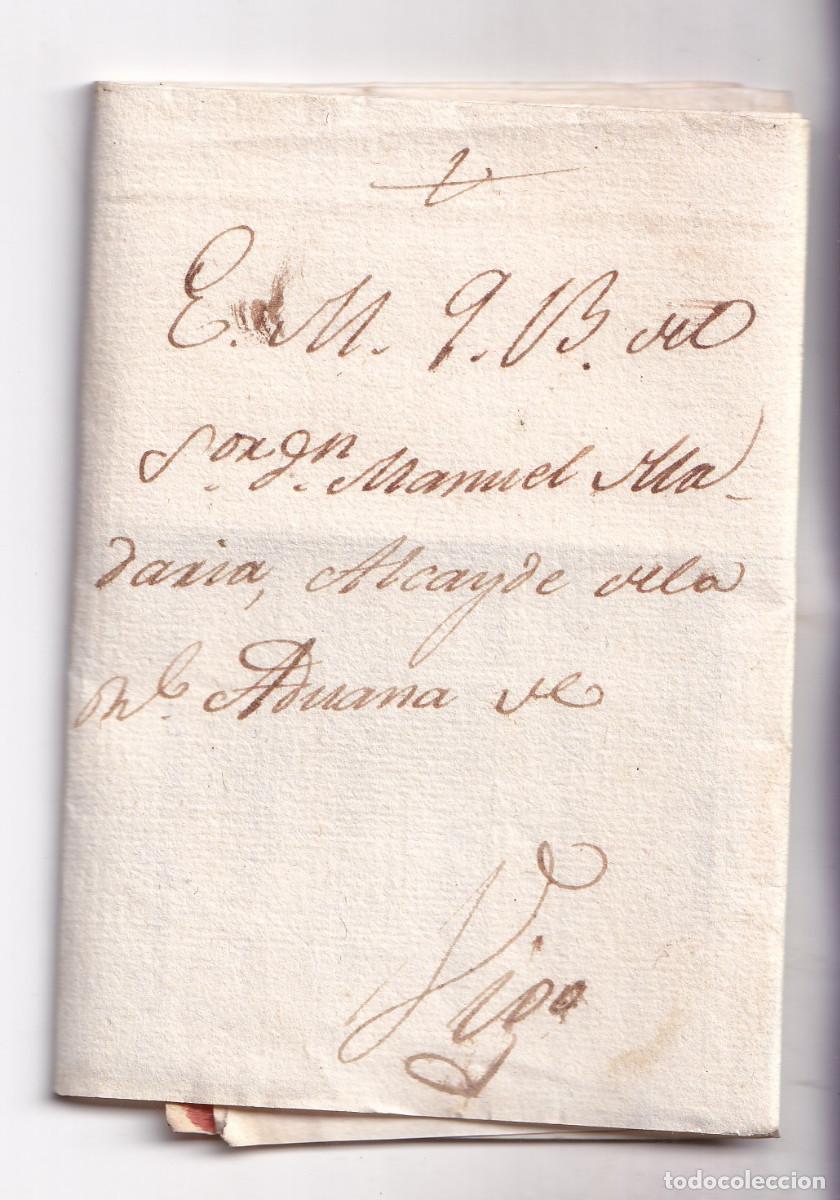 E. M. q. B. del
S.or d.n Manuel Ma-
daria, Alcayde dela
Aduana de
Vigo
todocoleccion